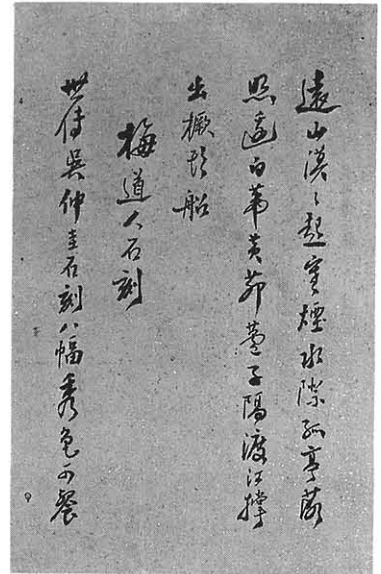 遠山漠々起寒煙水際孤亭落
照邊白葦黃茆子隔渡江撐
出橛頭船
梅道人石刻
世傳吳仲圭石刻八幅秀色可餐